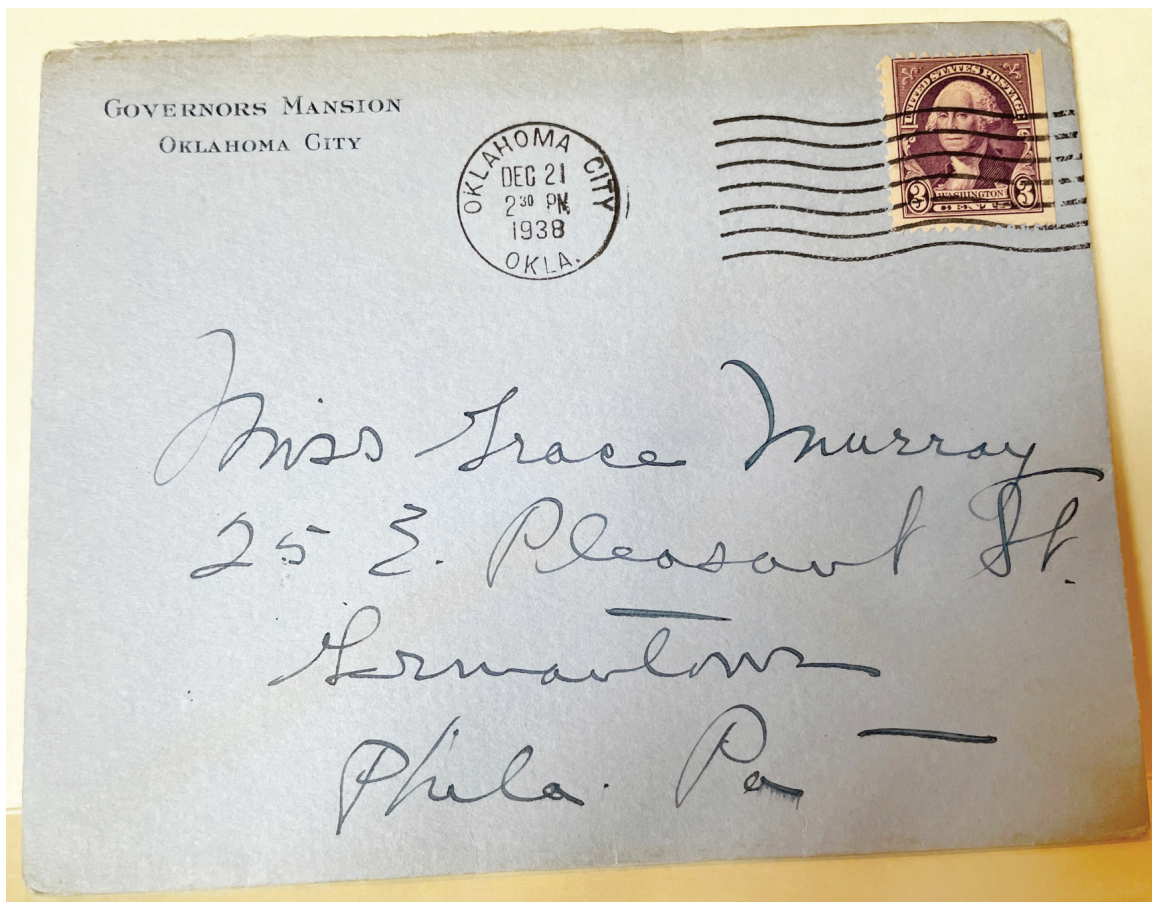 GOVERNORS MANSION
OKLAHOMA CITY
OKLAHOMA CITY
DEC 21
2³⁰ PM
1938
OKLA.
UNITED STATES POSTAGE
3 WASHINGTON 3
CENTS
Miss Grace Murray
25 E. Pleasant St.
Germantown
Phila. Pa